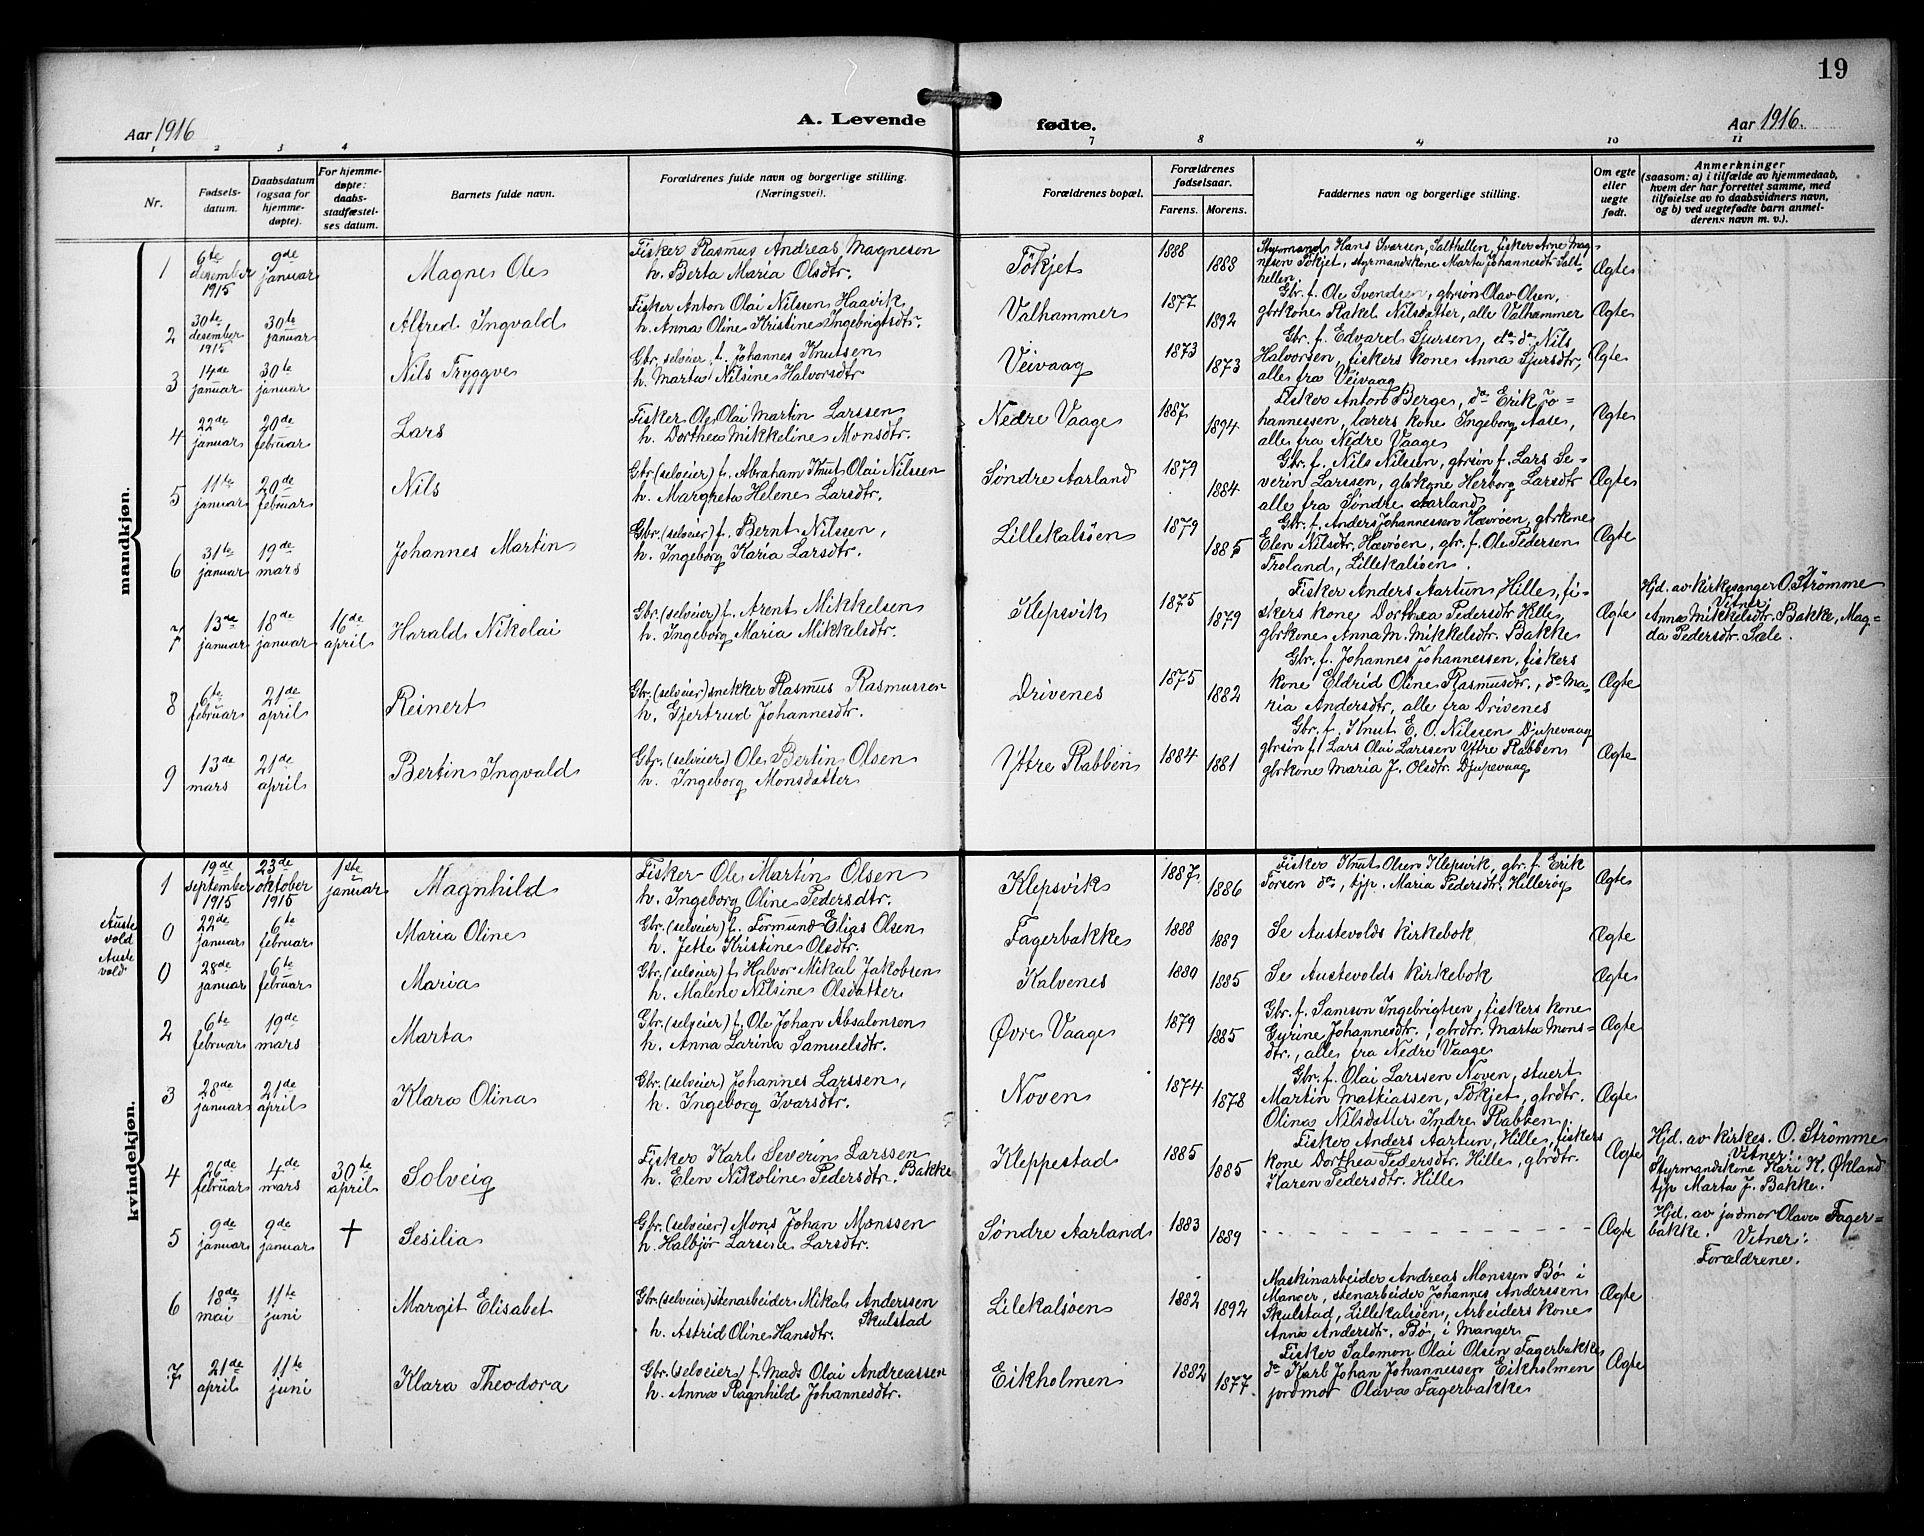 19
Aar 1916
A. Levende fødte.
Aar 1916.
1 2 3 4 7 8 9 10 11
Nr.
Fødsels-
datum.
Daabsdatum
(ogsaa for
hjemme-
døpte).
For hjemme-
døpte:
daabs-
stadfæstel-
ses datum.
Barnets fulde navn.
Forældrenes fulde navn og borgerlige stilling.
(Næringsvei).
Forældrenes bopæl.
Forældrenes
fødselsaar.
Farens. Morens.
Faddernes navn og borgerlige stilling.
Om egte
eller
uegte
født.
Anmerkninger
(saasom: a) i tilfælde av hjemmedaab,
hvem der har forrettet samme, med
tilføielse av to daabsvidners navn,
og b) ved uegtefødte barn anmel-
derens navn m. v.).
mandkjøn.
1
6te
desember
1915
9de
januar
Magne Ole
Fisker Rasmus Andreas Magnesen
h. Berta Maria Olsdtr.
Tökjet
1888
1888
Styrmand Hans Ivarsen, Salthellen, fisker Arne Mag-
nesen Tökjet, styrmandskone Marta Johannesdtr Salt-
hellen
Ægte
2
30te
desember
1915
30te
januar
Alfred Ingvald
Fisker Anton Olai Nilssen Haavik
h. Anna Oline Kristine Ingebrigtsdtr.
Valhammer
1877
1892
Gbr. f. Ole Svendsen, gbrsön Olav Olsen,
gbrkone Rakel Nilsdatter, alle Valhammer
Ægte
3
14de
januar
30te
januar
Nils Tryggve
Gbr. selveier, f. Johannes Knutsen
h. Marta Nilsine Halvorsdtr
Veivaag
1873
1873
Gbr. f. Edvard Sjursen, do do Nils
Halvorsen, fiskers kone Anna Sjursdtr,
alle fra Veivaag
Ægte
4
22de
januar
20de
februar
Lars
Fisker Ole Olai Martin Larssen
h. Dorthea Mikkeline Monsdtr.
Nedre Vaage
1887.
1894
Fisker Anton Berge, do Erik Jo-
hannessen, lærers kone Ingeborg Aase,
alle fra Nedre Vaage
Ægte
5
11te
januar
20de
februar
Nils
Gbr (selveier) f. Abraham Knut Olai Nilssen
h. Margreta Helene Larsdtr.
Söndre Aarland
1879
1884
Gbr. f. Nils Nilssen, gbrsön f. Lars Se-
verin Larssen, gbrkone Herborg Larsdtr
alle fra Söndre Aarland
Ægte
6
31te
januar
19de
mars
Johannes Martin
Gbr. (selveier) f. Bernt Nilssen,
h. Ingeborg Karia Larsdtr.
Lillekalsöen
1879
1885
Gbr. f. Anders Johannessen Hævröen, gbrkone
Elen Nilsdtr. Hævröen, gbr. f. Ole Pedersen
Troland, Lillekalsöen.
Ægte
7
13de
januar
18de
januar
16de
april
Harald Nikolai
Gbr. (selveier) f. Arent Mikkelsen
h. Ingeborg Maria Mikkelsdtr.
Klepsvik
1875
1879
Fisker Anders Aartun Hille, fi-
skers kone Dorthea Pedersdtr Hille,
gbrkone Anna M. Mikkelsdtr. Bakke
Ægte
Hjd. av kirkesanger O. Strömme
Vitner:
Anna Mikkelsdtr. Bakke, Mag-
da Pedersdtr. Sæle.
8
6te
februar
21de
april
Reinert
Gbr. (selveier) snekker Rasmus Rasmussen
h. Gjertrud Johannesdtr.
Drivenes
1875
1882
Gbr. f. Johannes Johannessen, fiskers
kone Eldrid Oline Rasmusdtr., do Ma-
ria Andersdtr, alle fra Drivenes
Ægte
9
13de
mars
21de
april
Bertin Ingvald
Gbr. (selveier) Ole Bertin Olsen
h. Ingeborg Monsdatter
Yttre Rabben
1884
1881
Gbr. f. Knut E. O. Nilssen Djupevaag
gbrsön f. Lars Olai Larssen Yttre Rabben
gbrkone Maria J. Olsdtr. Djupevaag
Ægte
kvindekjøn.
1
19de
september
1915
23de
oktober
1915
1ste
januar
Magnhild
Fisker Ole Martin Olsen
h. Ingeborg Oline Pedersdtr.
Klepsvik
1887.
1886
Fisker Knut Olsen Klepsvik, gbr. f. Erik
Torsen do, tjp. Maria Pedersdtr. Hilleröy
Ægte
Auste
vold
0
22de
januar
6te
februar
Maria Oline
Gbr. (selveier) f. Tormund Elias Olsen
h. Jette Kristine Olsdtr.
Fagerbakke
1888
1889
Se Austevolds kirkebok
Ægte
Auste
vold
0
28de
januar
6te
februar
Maria
Gbr. (selveier) f. Halvor Mikal Jakobsen
h. Malene Nilsine Olsdatter
Kalvenes
1880
1885
Se Austevolds kirkebok
Ægte
2
6te
februar
19de
mars
Marta
Gbr. (selveier) f. Ole Johan Absalonsen
h. Anna Larina Samuelsdtr.
Øvre Vaage
1879
1885
Gbr. f. Samson Ingebrigtsen, fiskers kone
Gyrine Johannesdtr., gbrdtr. Marta Mons-
dtr., alle fra Nedre Vaage
Ægte
3
28de
januar
21de
april
Klara Olina
Gbr. (selveier) Johannes Larssen,
h. Ingeborg Ivarsdtr.
Noven
1874
1878
Gbr. f. Olai Larssen Noven, stuert
Martin Matkiassen, Tökjet, gbrdtr.
Olina Nilsdatter Indre Rabben
Ægte
4
26de
februar
4de
mars
30te
april
Solveig
Fisker Karl Severin Larssen
h. Elen Nikoline Pedersdtr. Bakke
Kleppestad
1885
1885
Fisker Anders Aartun, Hille, fiskers
kone Dorthea Pedersdtr. Hille, gbrdtr.
Karen Pedersdtr. Hille
Ægte
Hjd. av kirkes. O. Strömme
Vitner:
Styrmandskone Kari K. Økland
tjp Marta J. Bakke.
5
9de
januar
9de
januar
†
Sesilia
Gbr. (selveier) Mons Johan Monssen
h. Halbjör Larsine Larsdtr.
Söndre Aarland
1883
1889
- - - - - - - - - - - -
Ægte
Hjd. av jordmor Olava Fager-
bakke. Vitner:
Forældrene.
6
18de
mai
11te
juni
Margit Elisabet
Gbr. (selveier) stenarbeider Mikal Anderssen
Skulstad
h. Astrid Oline Hansdtr.
Lilekalsöen
1882
1892
Maskinarbeider Andreas Monssen Bö i
Manger, stenarbeider Johannes Anderssen
Skulstad, Lillekalsöen, Arbeiders kone
Anna Andersdtr. Bö, i Manger
Ægte
7
21de
april
11te
juni
Klara Theodora
Gbr. (selveier) f. Mads Olai Andreassen
h. Anna Ragnhild Johannesdtr.
Eikholmen
1882
1877.
Fisker Salomon Olai Olsen Fagerbakke
do Karl Johan Johannessen Eikholmen
jordmor Olava Fagerbakke
Ægte